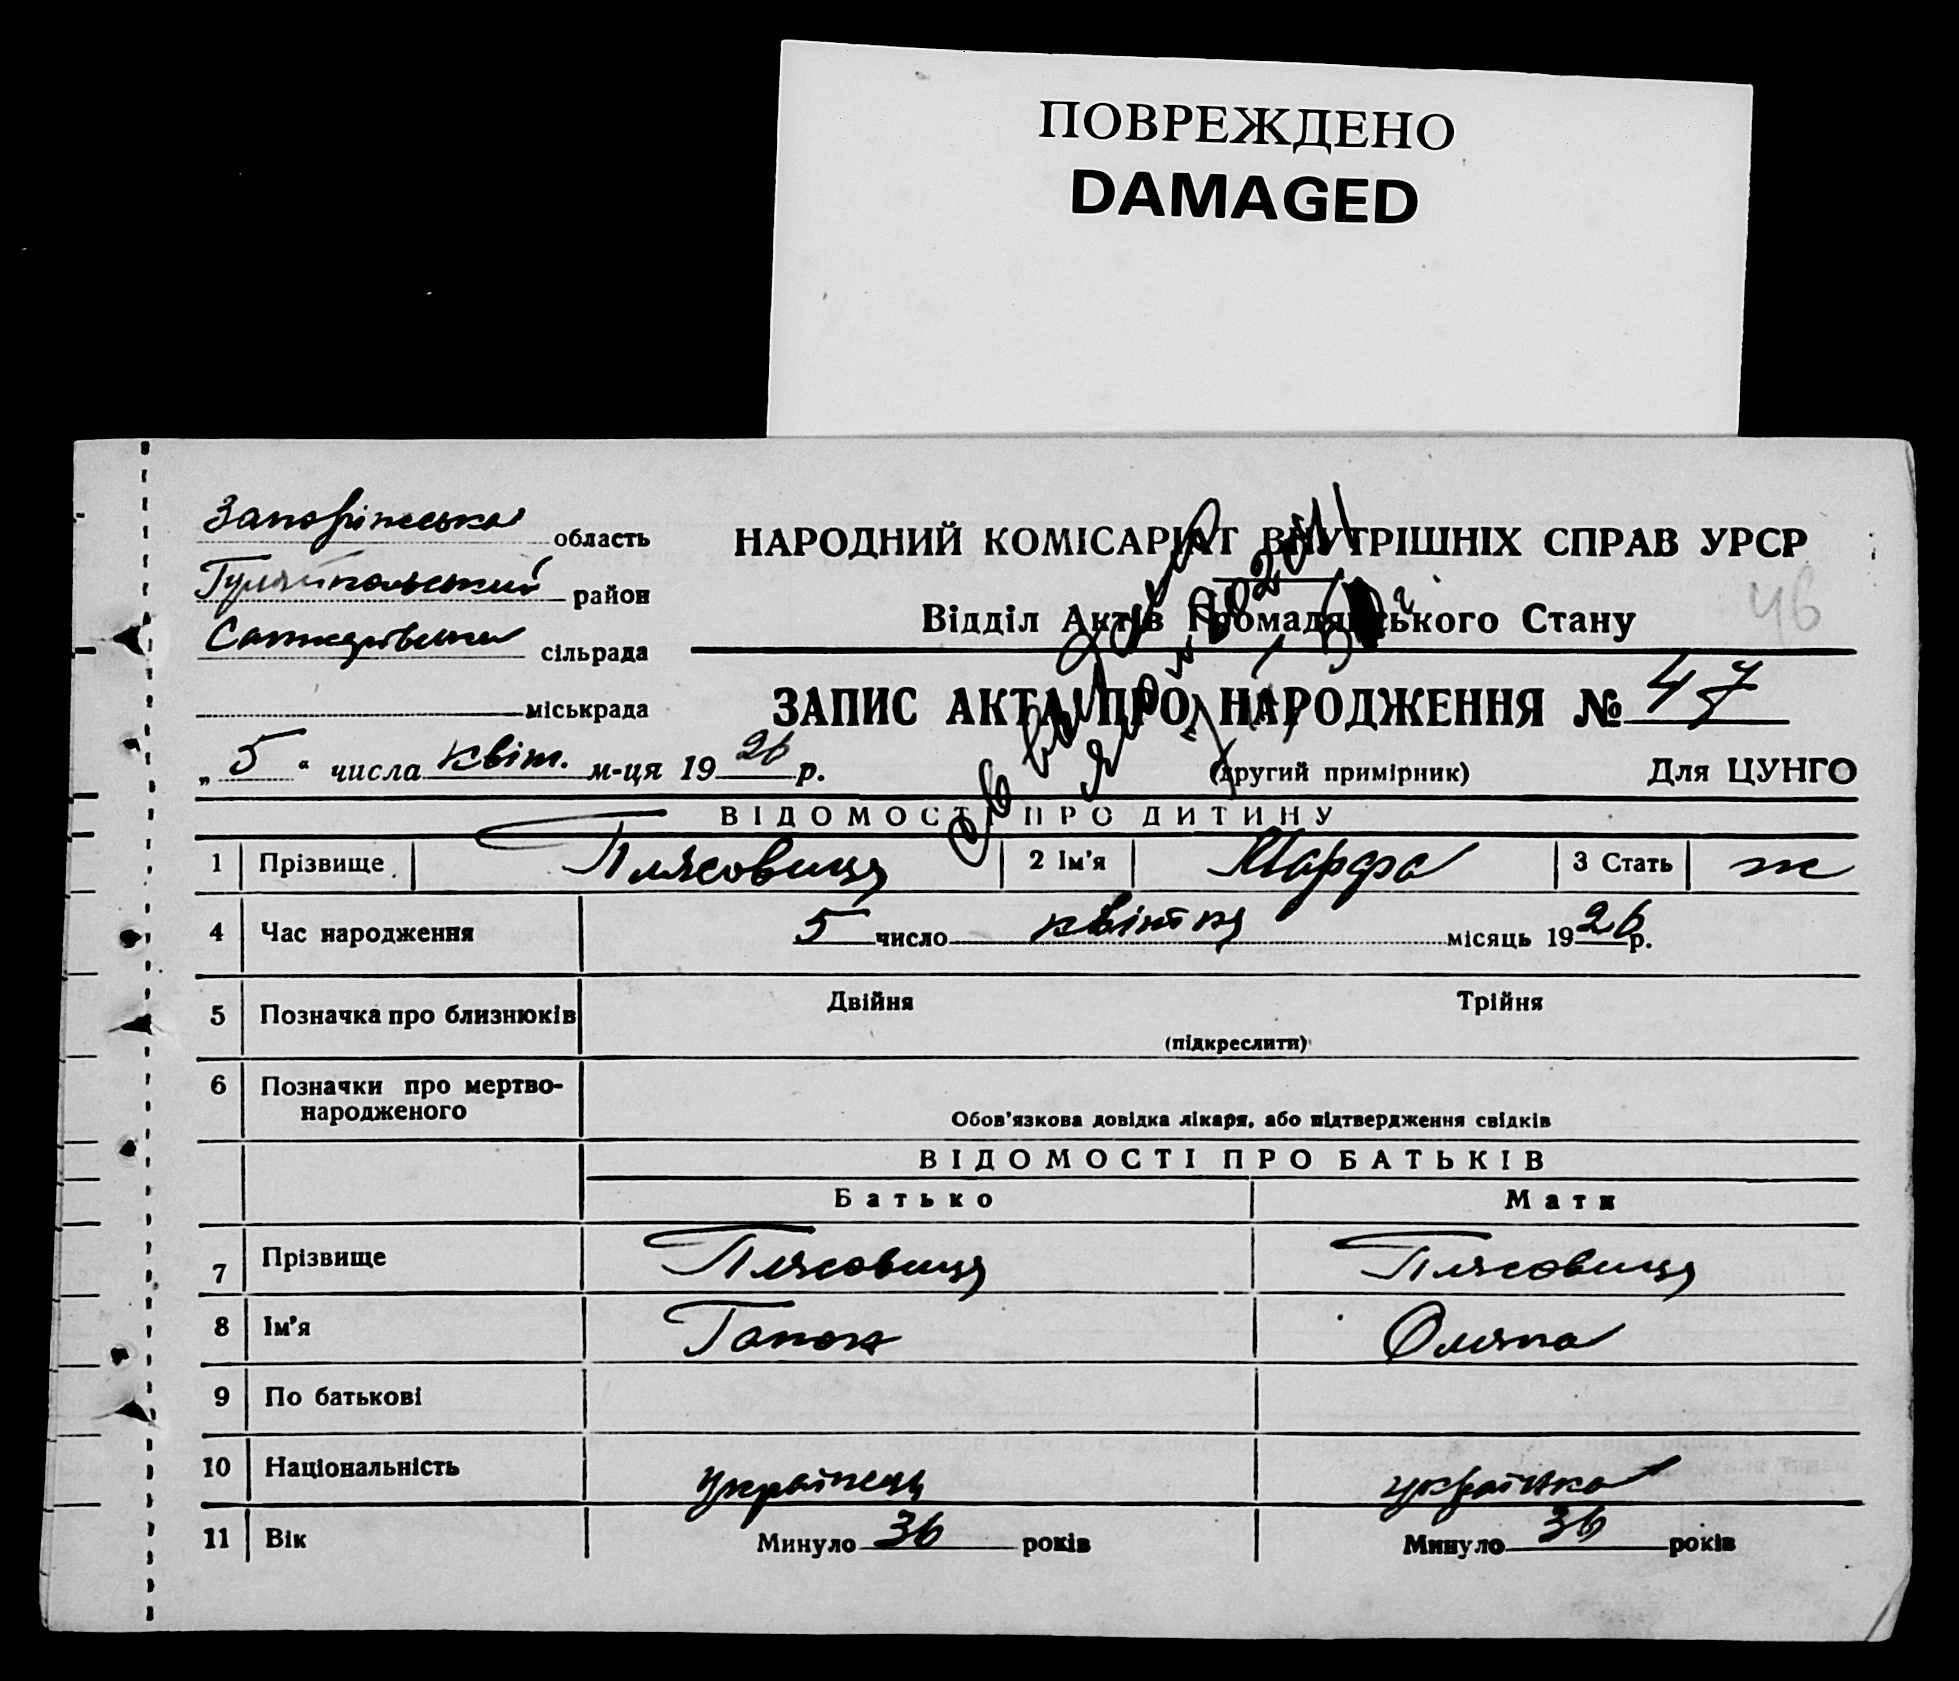 ПОВРЕЖДЕНО
DAMAGED
Запорізька область
Гуляйпольський район
сільрада
міськрада
НАРОДНИЙ КОМІСАРІАТ ВНУТРІШНІХ СПРАВ УРСР
Відділ Актів Громадянського Стану
46
ЗАПИС АКТА ПРО НАРОДЖЕННЯ № 47
„ 5 “ числа квіт. м-ця 19 26 р.
(другий примірник)
Для ЦУНГО
ВІДОМОСТІ ПРО ДИТИНУ
1 Прізвище Плясовиця 2 Ім'я Марфа 3 Стать ж
4 Час народження 5 число квітня місяць 19 26 р.
5 Позначка про близнюків Двійня Трійня
(підкреслити)
6 Позначки про мертво-
народженого
Обов'язкова довідка лікаря, або підтвердження свідків
ВІДОМОСТІ ПРО БАТЬКІВ
Батько Мати
7 Прізвище Плясовиця Плясовиця
8 Ім'я Гапон Оляна
9 По батькові
10 Національність українець українка
11 Вік Минуло 36 років Минуло 36 років